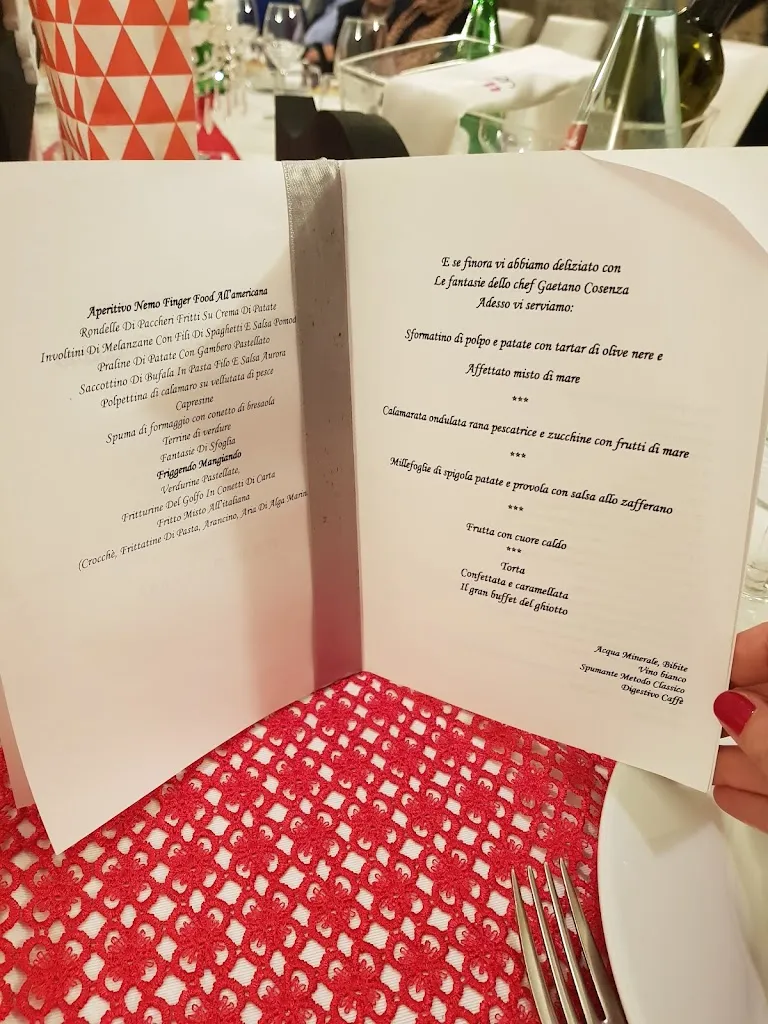 Aperitivo Nemo Finger Food All'americana
Rondelle Di Paccheri Fritti Su Crema Di Patate
Involtini Di Melanzane Con Fili Di Spaghetti E Salsa Pomod
Praline Di Patate Con Gambero Pastellato
Saccottino Di Bufala In Pasta Filo E Salsa Aurora
Polpettina di calamaro su vellutata di pesce
Capresine
Spuma di formaggio con conetto di bresaola
Terrine di verdure
Fantasie Di Sfoglia
Friggendo Mangiando
Verdurine Pastellate,
Fritturine Del Golfo In Conetti Di Carta
Fritto Misto All'italiana
(Crocchè, Frittatine Di Pasta, Arancino, Aria Di Alga Marin
E se finora vi abbiamo deliziato con
Le fantasie dello chef Gaetano Cosenza
Adesso vi serviamo:
Sformatino di polpo e patate con tartar di olive nere e
Affettato misto di mare
***
Calamarata ondulata rana pescatrice e zucchine con frutti di mare
***
Millefoglie di spigola patate e provola con salsa allo zafferano
***
Frutta con cuore caldo
***
Torta
Confettata e caramellata
Il gran buffet del ghiotto
Acqua Minerale, Bibite
Vino bianco
Spumante Metodo Classico
Digestivo Caffè